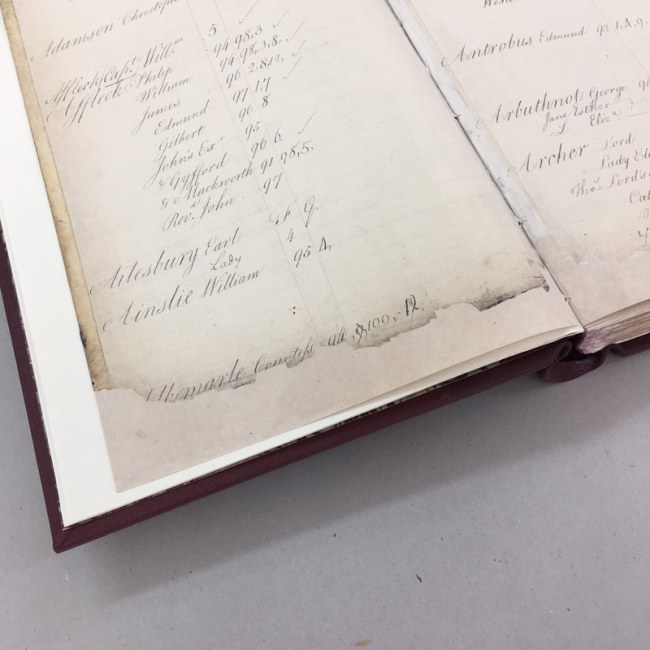 Adamson Christoph 5
Affleck Capt. Willm 94, 98, 3
Affleck Philip 94, 98, 3, 8.
William 96, 2, 8, 12,
James 97, 17
Edmund 96, 8
Gilbert 95
John's Exr 96, 6.
& Gyfford 91, 98, 5.
& Mackworth
Revd. John 97
Ailesbury Earl
Lady 4
Ainslie William 95, 4,
Countess 94, 100, 12
Antrobus Edmund 95, 1, 4, 9.
Arbuthnot George
Jane Esther
Archer Lord
Lady
Thos. Lord's